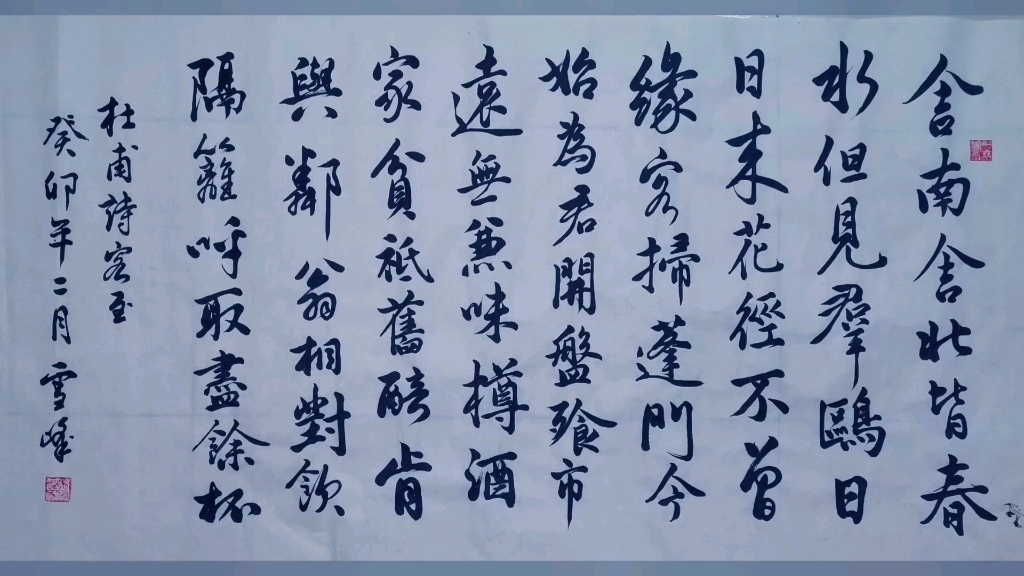 舍南舍北皆春
水但見羣鷗日
日來花徑不曾
緣客掃蓬門今
始為君開盤飱市
遠無兼味樽酒
家貧祗舊醅肯
與鄰翁相對飲
隔籬呼取盡餘杯
杜甫詩客至
癸卯年二月雪峰